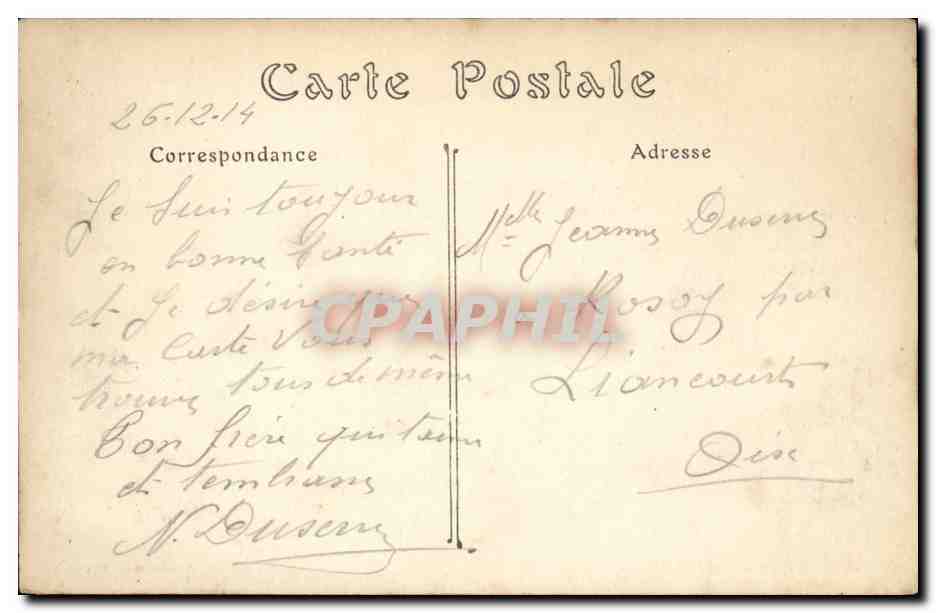 Carte Postale
26-12-14
Correspondance
Je suis toujour
en bonne santé
et je désire que
ma Carte Vous
trouve tous de même
Ton frère qui taime
et tembrasse
N. Duserre
Adresse
Melle Jeanne Duserre
Rosoy par
Liancourt
Oise
CPAPHIL